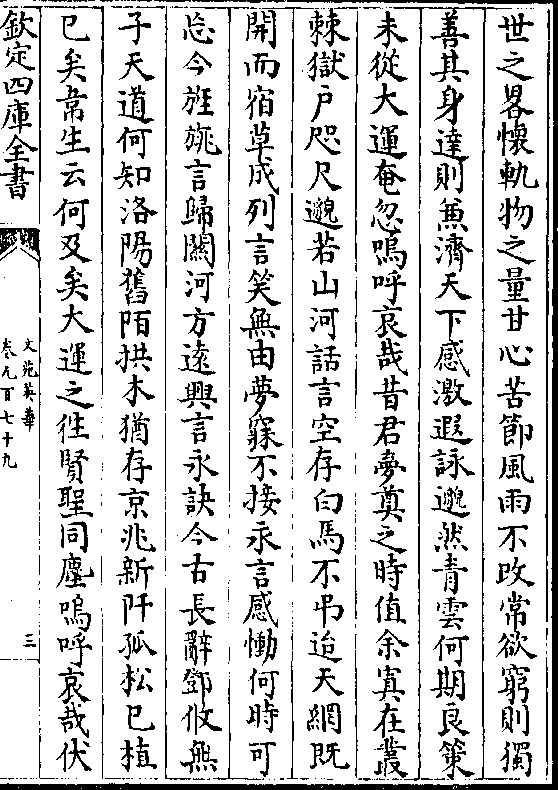 世之畧懷軌物之量甘心苦節風雨不改常欲窮則獨
善其身達則兼濟天下感激遐詠邈然青雲何期良策
未從大運奄忽嗚呼哀哉昔君夢奠之時值余寘在叢
棘獄户咫尺邈若山河話言空存白馬不弔迨天網既
開而宿草成列言笑無由夢寐不接永言感慟何時可
忘今旌旐言歸關河方逺興言永訣今古長辭鄧攸無
子天道何知洛陽舊陌拱木猶存京兆新阡孤松已植
已矣韋生云何及矣大運之往賢聖同塵嗚呼哀哉伏
欽定四庫全書
文苑英華
卷九百七十九
三